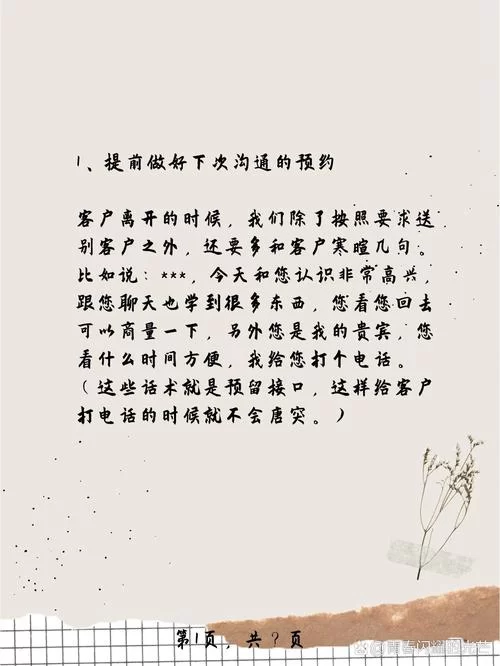 1、提前做好下次沟通的预约
客户离开的时候，我们除了按照要求送
别客户之外，还要多和客户寒暄几句。
比如说：***，今天和您认识非常高兴，
跟您聊天也学到很多东西，您看您回去
可以商量一下，另外您是我的贵宾，您
看什么时间方便，我给您打个电话。
（这些话术就是预留接口，这样给客户
打电话的时候就不会唐突。）
第1页，共？页
青春闪耀的光芒